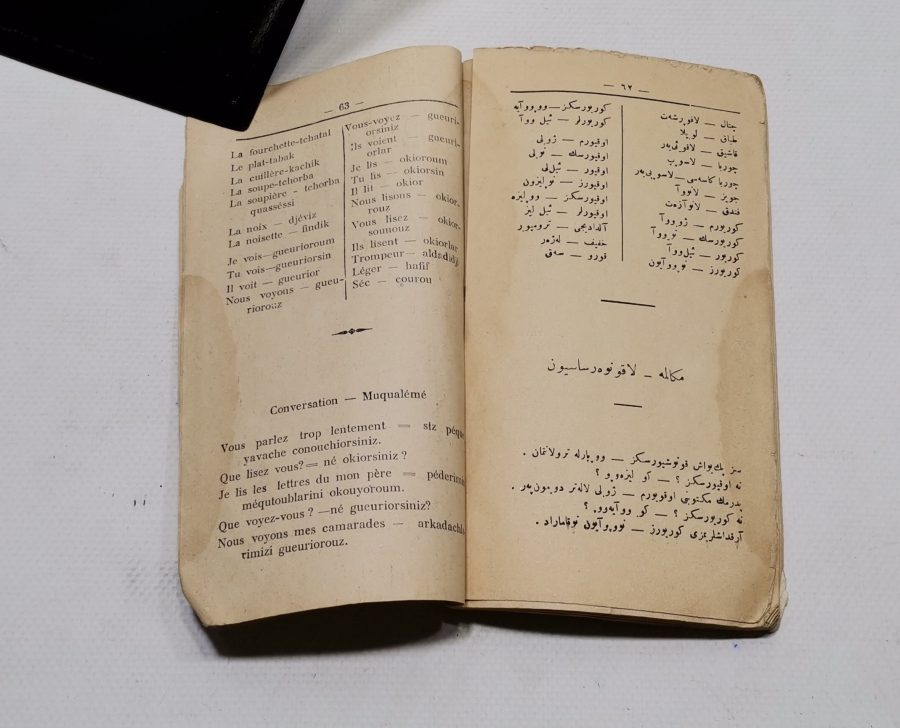 — 63 —
La fourchette-tchatal
Le plat-tabak
La cuillère-kachik
La soupe-tchorba
La soupière - tchorba
quasséssi
La noix — djéviz
La noisette — findik
Je vois—gueurioroum
Tu vois—gueuriorsin
Il voit — gueurior
Nous voyons — gueu-
riorouz
Vous-voyez — gueuri-
orsiniz
Ils voient — gueuri-
orlar
Je lis — okioroum
Tu lis — okiorsin
Il lit — okior
Nous lisons — okior-
rouz
Vous lisez — okior-
sounouz
Ils lisent — okiorlar
Trompeur— aldadidji
Léger — hafif
Séc — courou
Conversation — Muqualémé
Vous parlez trop lentement = siz
yavache conouchiorsiniz.
Que lisez vous? = né okiorsiniz ?
Je lis les lettres du mon père =
méqutoublarini okouyoroum.
Que voyez-vous ? —né gueuriorsiniz?
Nous voyons mes camarades —
rimizi gueuriorouz.
— ٦٢ —
چتال — لافورشەت
طباق — لوپلا
قاشیق — لاقوئی‌یەر
چوربا — لاسوپ
چوربا كاسه‌سی—لاسوپی‌یەر
جویز — لانووآ
فندق — لانوآزەت
كوریورم — ژووآ
كوریورسك — تووآ
كوریور — ئیل‌ووآ
كوریورز — نووآیون
كوریورسكز—وووآیه
كوریورلر — ئیل ووآ
اوقیورم — ژولی
اوقیورسك — تولی
اوقیور — ئیل‌لی
اوقیورز — نولیزون
اوقیورسكز — وولیزه
اوقیورلر — ئیل لیز
آلدادیجی — ترومپور
خفیف — له‌ژەر
قورو — سەق
مكالمه — لاقونوەرساسیون
سز پك یواش قونوشیورسكز — ووپارله ترولانتمان .
نه اوقیورسكز ؟ — كو لیزەوو ؟
پدرمك مكتوبنی اوقویورم — ژولی لالەتر دومون‌پەر .
نه كوریورسكز ؟ — كو ووآیەوو ؟
آرقداشلریمزی كوریورز — نووآیون نوقاماراد .